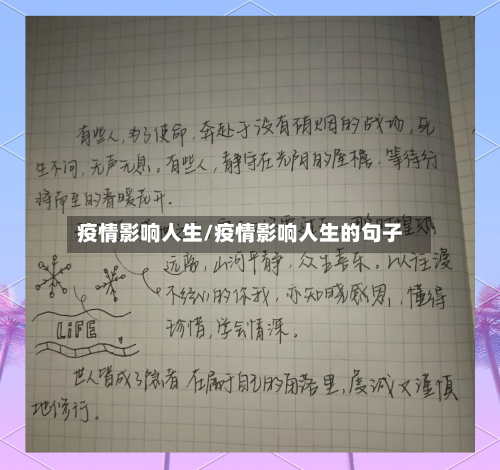 有些人,为了使命,奔赴于没有硝烟的战场,死
生不问,无声无息。有些人,静守在光阴的屋檐,等待行
将而至的春暖花开。
疫情影响人生/疫情影响人生的句子
远隔,山河平静,众生喜乐。以往漫
不经心的你我,亦知晓感恩,懂得
珍惜,学会情深。
LiFE
世人皆成了隐者 在属于自己的角落里,虔诚又谨慎
地修行。